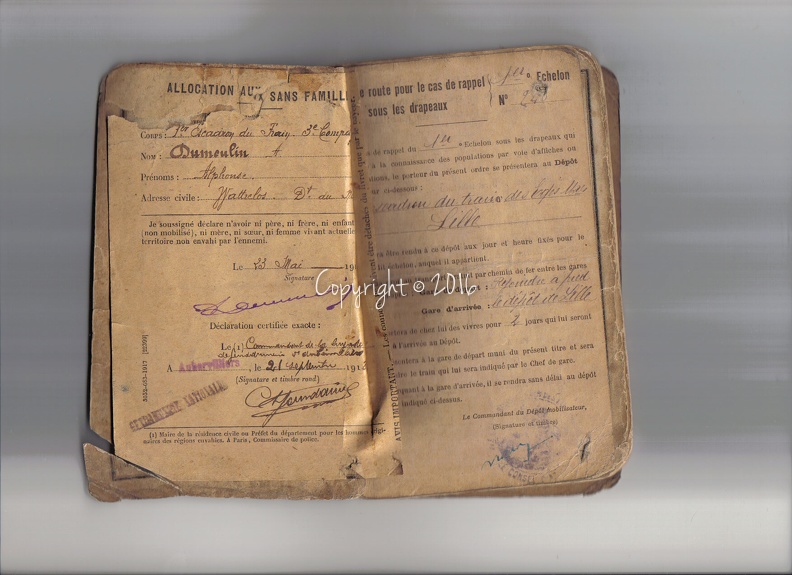 ALLOCATION AUX SANS FAMILLE
Corps : 1er Escadron du Train. 3e Compag
Nom : Dumoulin A.
Prénoms : Alphonse.
Adresse civile : Wattrelos. Dt. du
Je soussigné déclare n'avoir ni père, ni frère, ni enfant
(non mobilisé), ni mère, ni sœur, ni femme vivant actuelle
territoire non envahi par l'ennemi.
Le 23 Mai 19
Signature
Déclaration certifiée exacte :
Le (1) Commandant de la
A Aubervilliers, le 21 septembre 191
(Signature et timbre rond)
GENDARMERIE NATIONALE
(1) Maire de la résidence civile ou Préfet du département pour les hommes
naires des régions envahies. A Paris, Commissaire de police.
3024-653-1917 [22399]
AVIS IMPORTANT. — Les
être détachés du livret que par le
e route pour le cas de rappel
sous les drapeaux
1er Echelon
N°
s de rappel du 1er Echelon sous les drapeaux qui
à la connaissance des populations par voie d'affiches ou
tions, le porteur du présent ordre se présentera au Dépôt
ci-dessous :
escadron du train des
Lille
ra être rendu à ce dépôt aux jour et heure fixés pour le
échelon, auquel il appartient.
par chemin de fer entre les gares
: Rejoindre à pied
Gare d'arrivée : le dépôt de Lille
de chez lui des vivres pour 2 jours qui lui seront
à l'arrivée au Dépôt.
à la gare de départ muni du présent titre et sera
le train qui lui sera indiqué par le Chef de gare.
à la gare d'arrivée, il se rendra sans délai au dépôt
indiqué ci-dessus.
Le Commandant du Dépôt mobilisateur,
(Signature et timbre)
Copyright © 2016